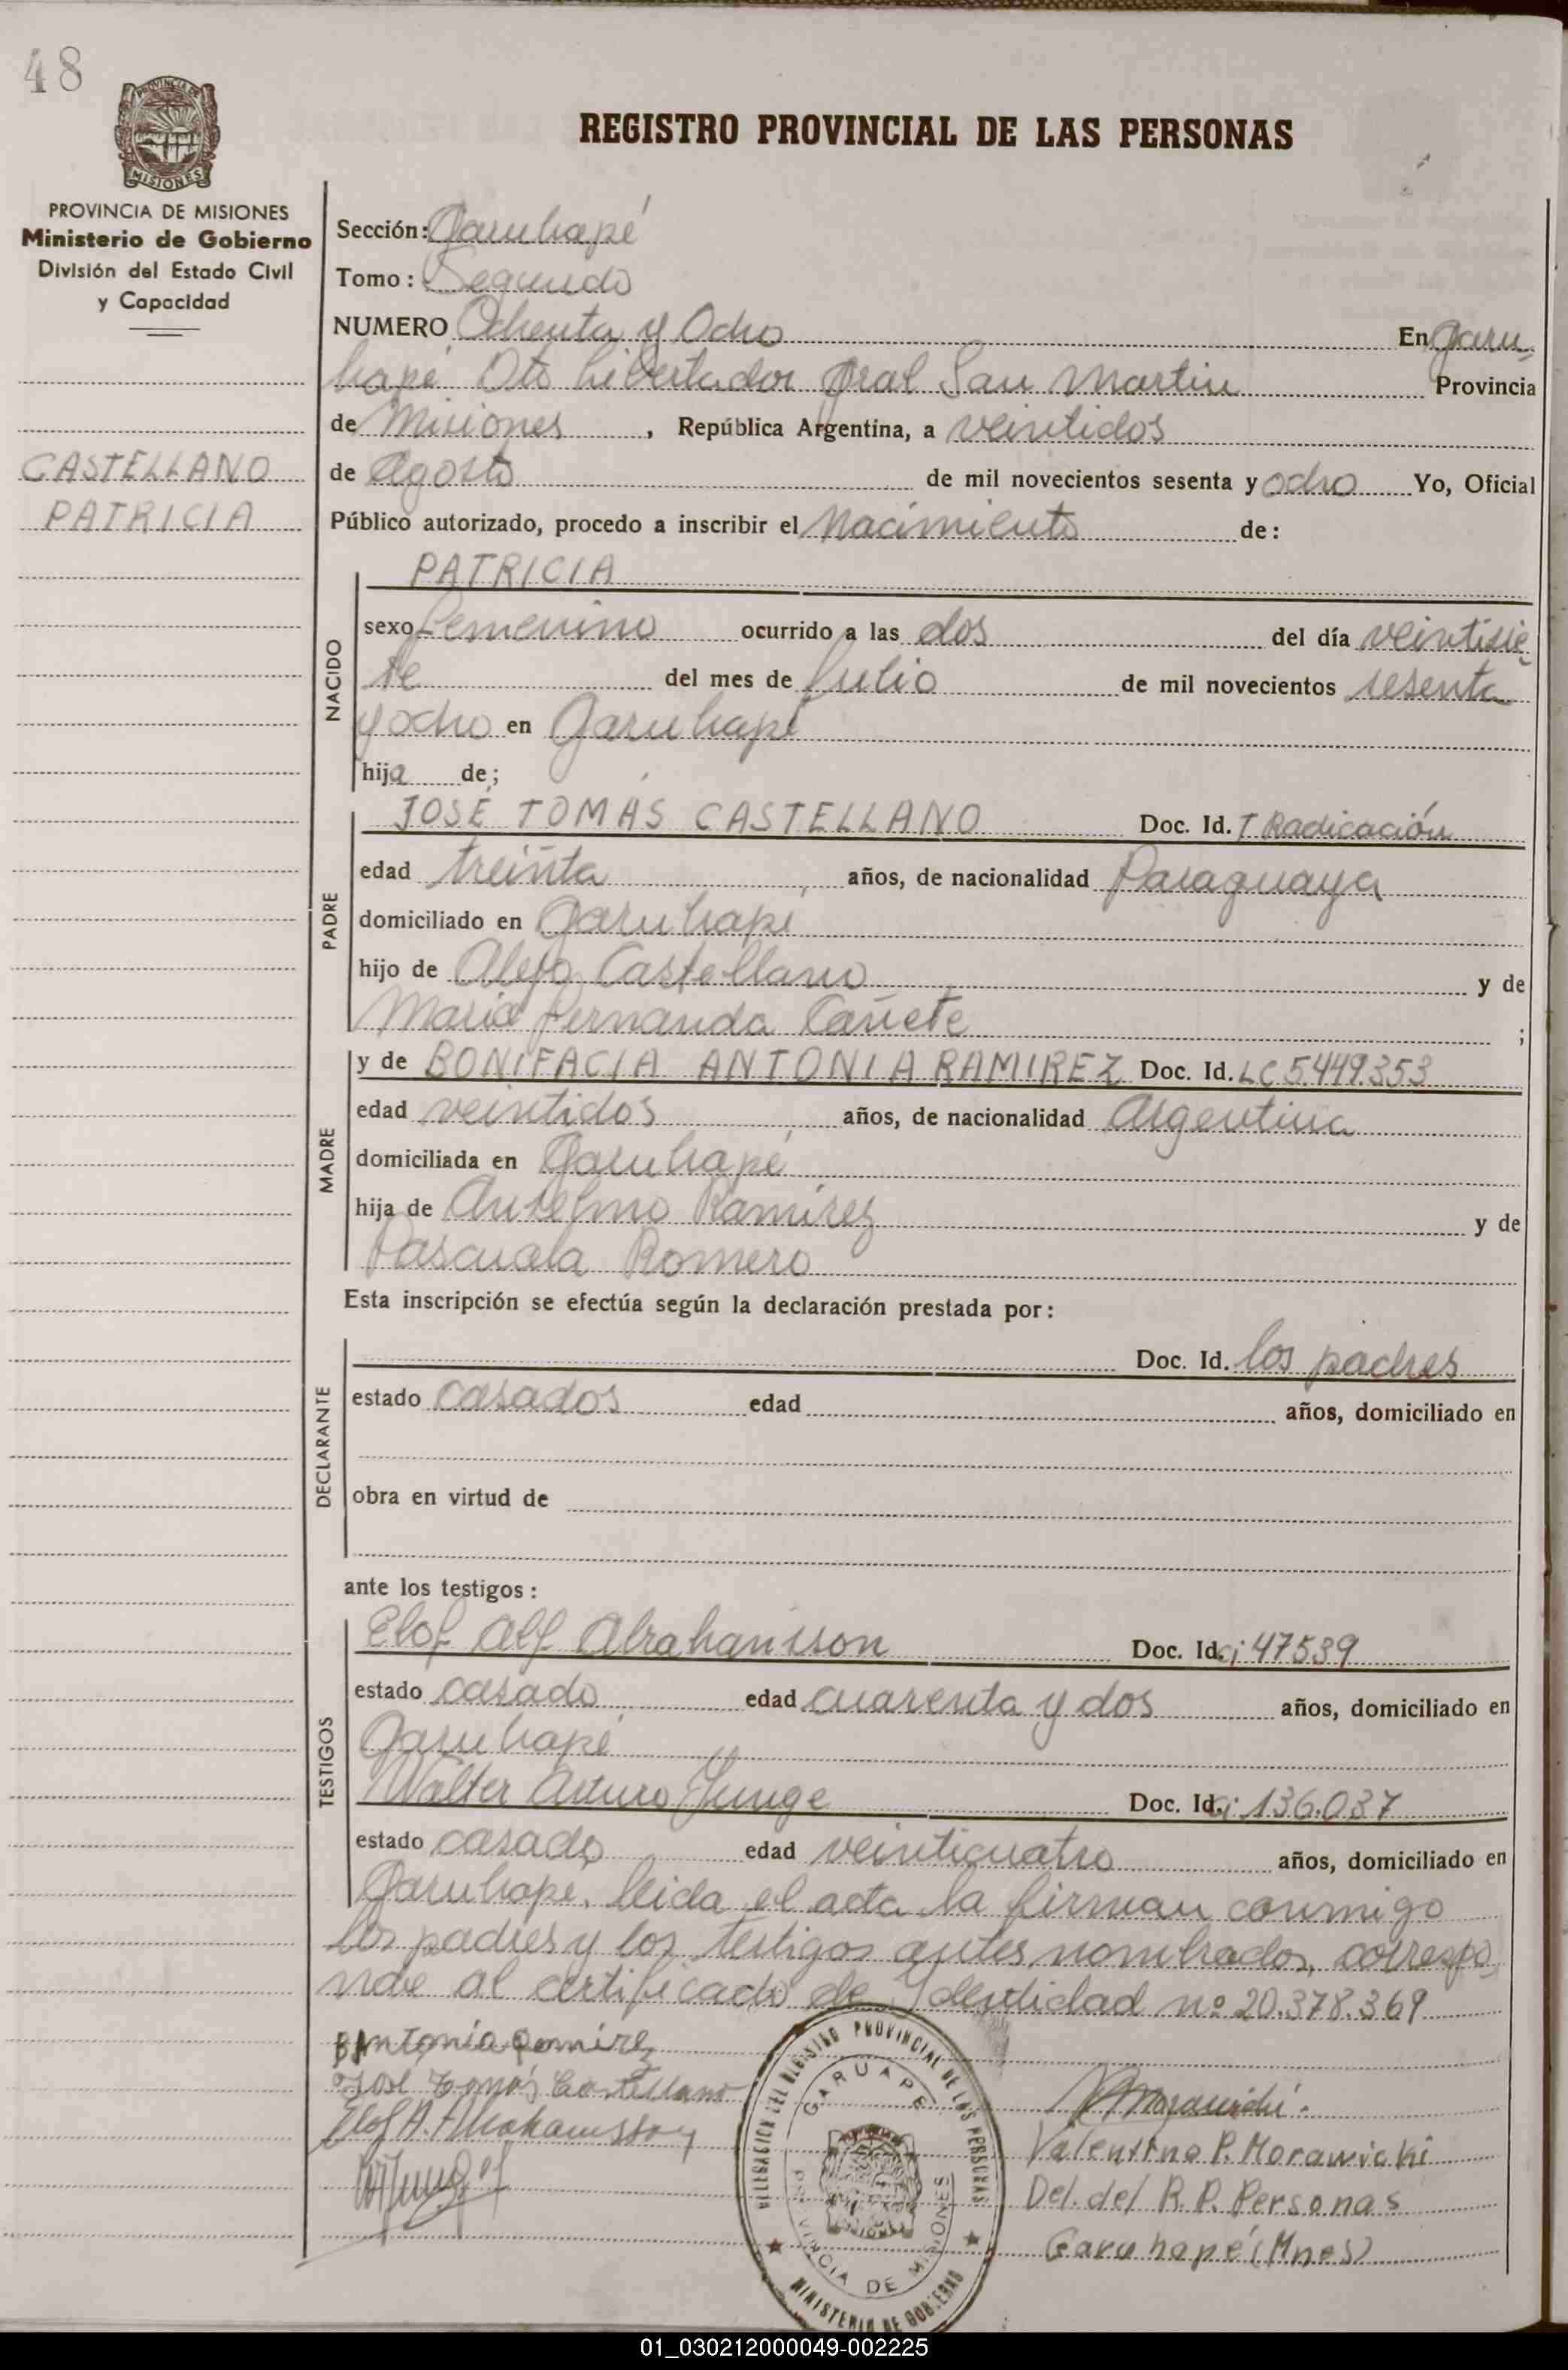 48
PROVINCIA DE
MISIONES
PROVINCIA DE MISIONES
Ministerio de Gobierno
División del Estado Civil
y Capacidad
CASTELLANO
PATRICIA
REGISTRO PROVINCIAL DE LAS PERSONAS
Sección: Garuhapé
Tomo: Segundo
NUMERO Ochenta y Ocho En Garu-
hapé Dto Libertador Gral San Martin Provincia
de Misiones, República Argentina, a veintidos
de Agosto de mil novecientos sesenta y ocho Yo, Oficial
Público autorizado, procedo a inscribir el Nacimiento de:
NACIDO
PATRICIA
sexo femenino ocurrido a las dos del día veintisie-
te del mes de Julio de mil novecientos sesenta
y ocho en Garuhapé
hija de;
PADRE
JOSÉ TOMÁS CASTELLANO Doc. Id. T Radicación
edad treinta años, de nacionalidad Paraguaya
domiciliado en Garuhapé
hijo de Alejo Castellano y de
Maria Fernanda Cañete ;
MADRE
y de BONIFACIA ANTONIA RAMIREZ Doc. Id. LC 5.449.353
edad veintidos años, de nacionalidad Argentina
domiciliada en Garuhapé
hija de Anselmo Ramírez y de
Pascuala Romero
Esta inscripción se efectúa según la declaración prestada por:
DECLARANTE
Doc. Id. los padres
estado casados edad años, domiciliado en
obra en virtud de
ante los testigos:
TESTIGOS
Elof Alf Abrahamsson Doc. Id. ci 47539
estado casado edad cuarenta y dos años, domiciliado en
Garuhapé
Walter Arturo Junge Doc. Id. ci 136.037
estado casado edad veinticuatro años, domiciliado en
Garuhape, leida el acta la firman conmigo
los padres y los testigos antes nombrados, correspo-
nde al certificado de Identidad nº 20.378.369
B Antonia Ramirez
José Tomás Castellano
Elof A. Abrahamsson
WAJunge
DELEGACION DEL REGISTRO PROVINCIAL DE LAS PERSONAS
GARUAPE
PROVINCIA DE MISIONES
MINISTERIO DE GOBIERNO
VMorawicki
Valentino P. Morawicki
Del. del R.P. Personas
Garuhapé (Mnes)
01_030212000049-002225